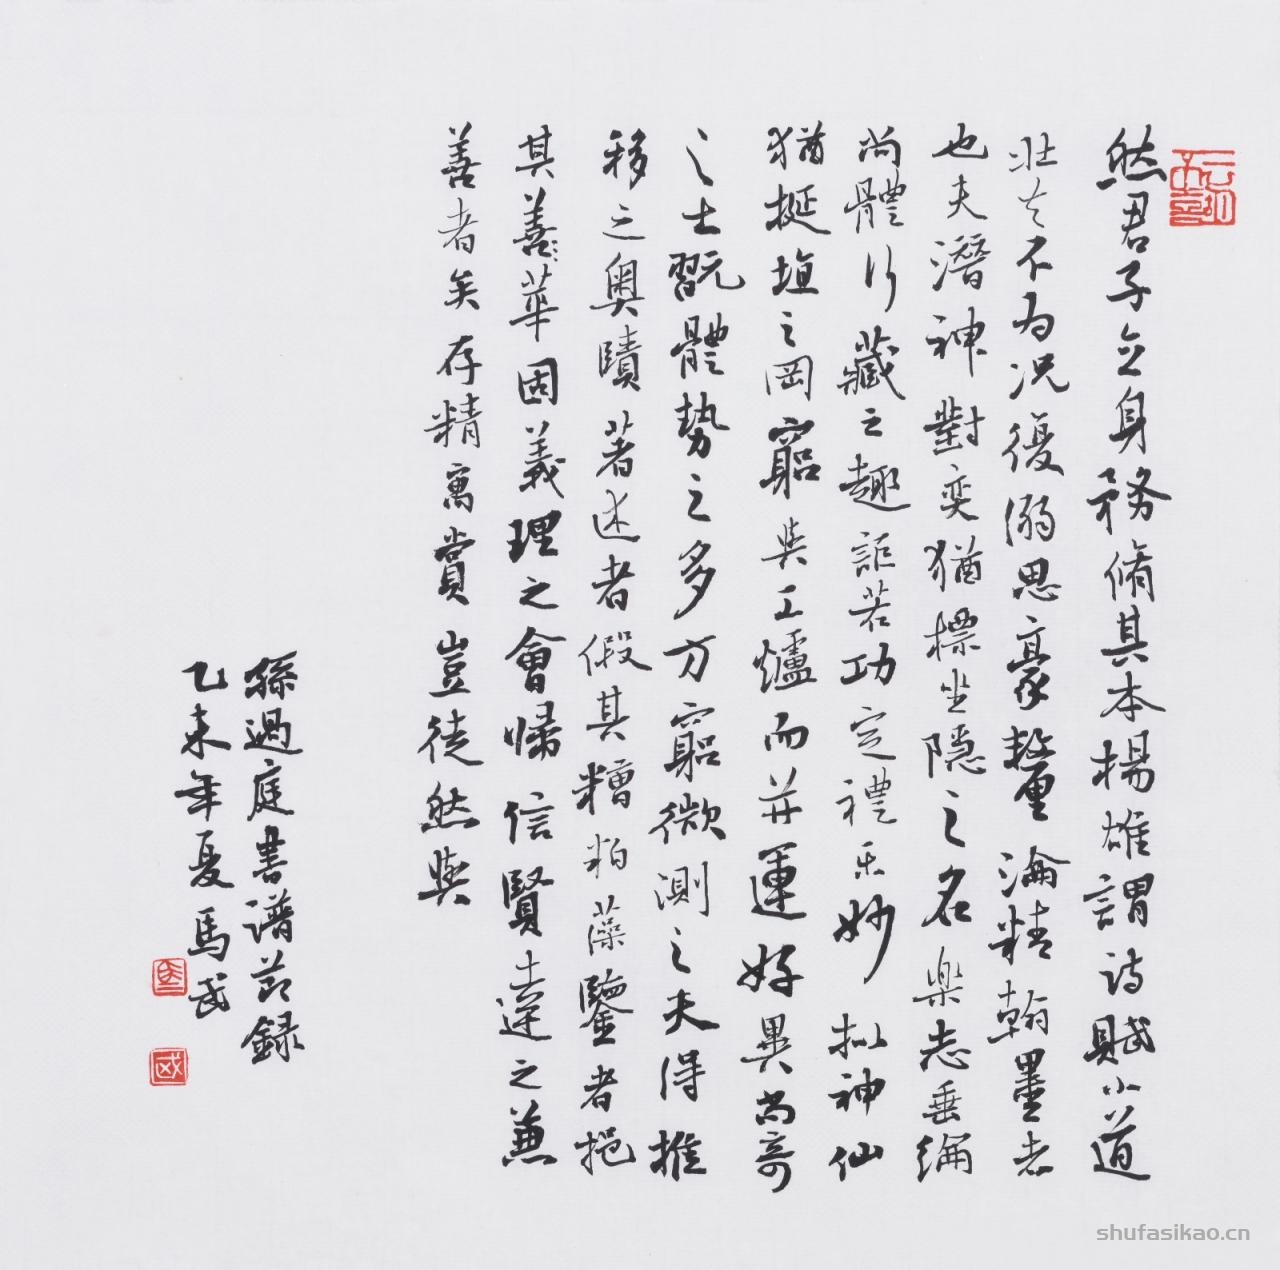 然君子立身務脩其本揚雄謂詩賦小道
壯夫不为况復溺思豪釐淪精翰墨者
也夫潛神對奕猶標坐隱之名樂志垂綸
尚體行藏之趣詎若功定禮乐妙拟神仙
猶挻埴之罔窮與工爐而并運好異尚奇
之士翫體勢之多方窮微測之夫得推
移之奧賾著述者假其糟粕藻鑒者挹
其善華固義理之會歸信賢達之兼
善者矣存精寓賞豈徒然與
孫過庭書谱节録
乙未年夏馬武
shufasikao.cn